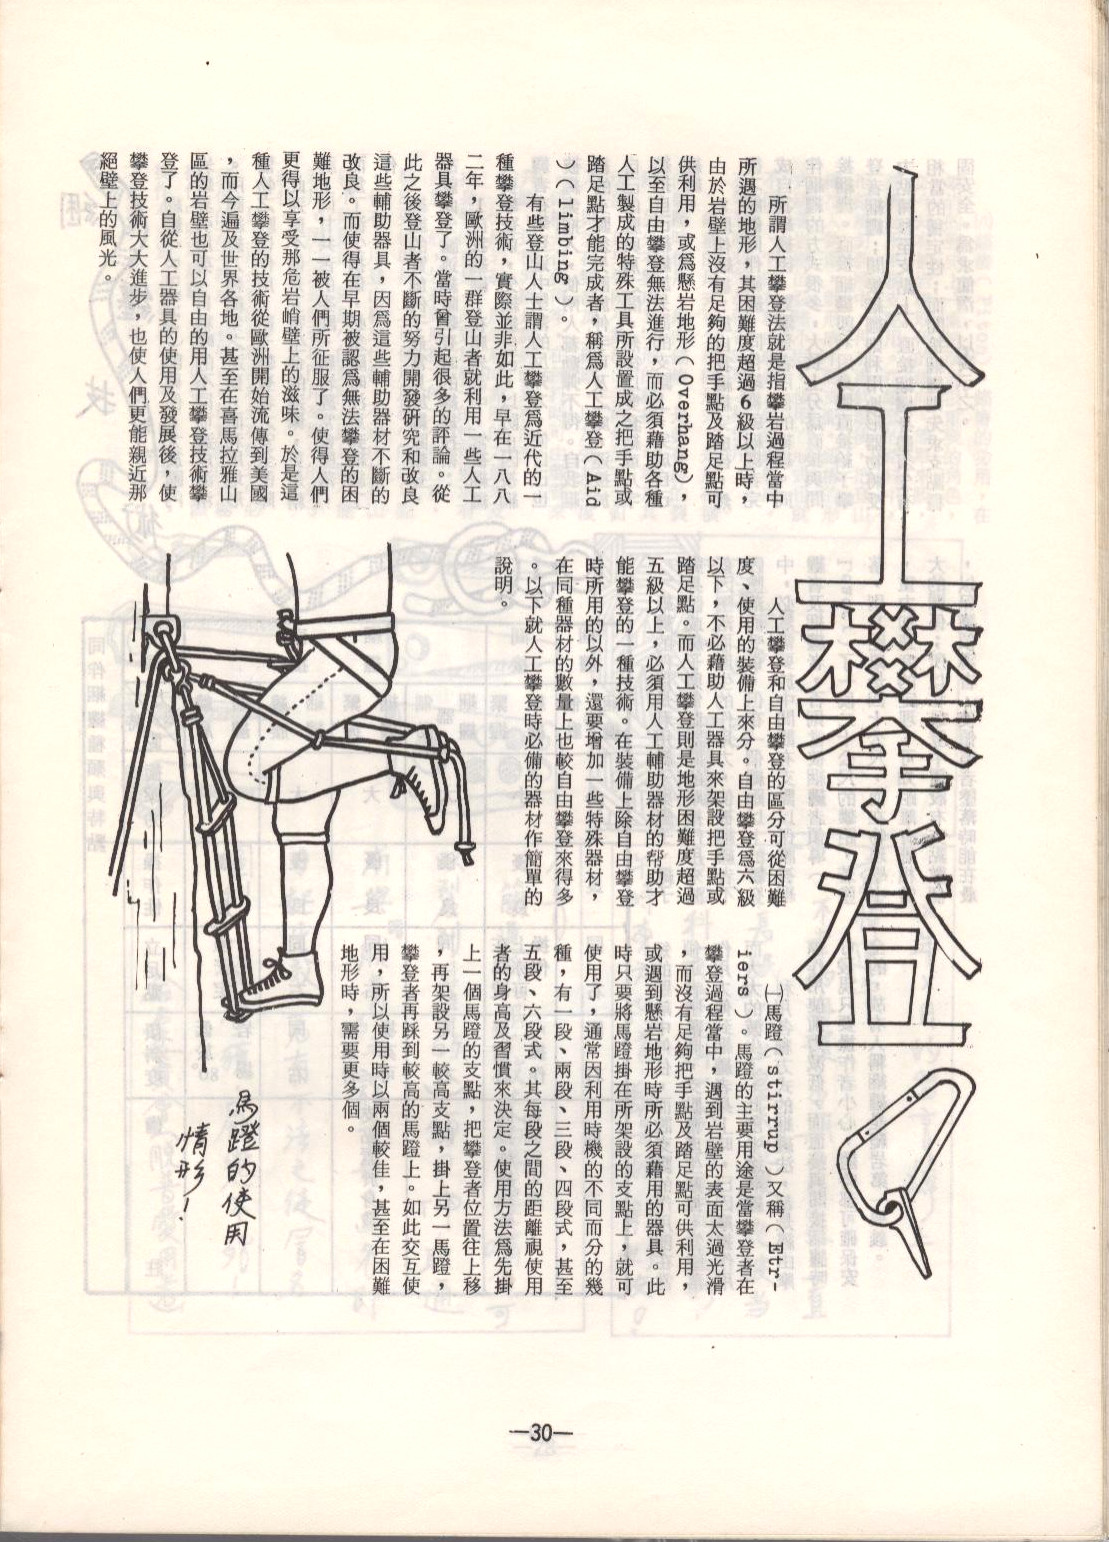 人工攀登
　所謂人工攀登法就是指攀岩過程當中
所遇的地形，其困難度超過6級以上時，
由於岩壁上沒有足夠的把手點及踏足點可
供利用，或爲懸岩地形（Overhang），
以至自由攀登無法進行，而必須藉助各種
人工製成的特殊工具所設置成之把手點或
踏足點才能完成者，稱爲人工攀登（Aid
）（limbing）。
　有些登山人士謂人工攀登爲近代的一
種攀登技術，實際並非如此，早在一八八
二年，歐洲的一群登山者就利用一些人工
器具攀登了。當時曾引起很多的評論。從
此之後登山者不斷的努力開發硏究和改良
這些輔助器具，因爲這些輔助器材不斷的
改良。而使得在早期被認爲無法攀登的困
難地形，一一被人們所征服了。使得人們
更得以享受那危岩峭壁上的滋味。於是這
種人工攀登的技術從歐洲開始流傳到美國
，而今遍及世界各地。甚至在喜馬拉雅山
區的岩壁也可以自由的用人工攀登技術攀
登了。自從人工器具的使用及發展後，使
攀登技術大大進步，也使人們更能親近那
絕壁上的風光。
　人工攀登和自由攀登的區分可從困難
度、使用的裝備上來分。自由攀登爲六級
以下，不必藉助人工器具來架設把手點或
踏足點。而人工攀登則是地形困難度超過
五級以上，必須用人工輔助器材的帮助才
能攀登的一種技術。在裝備上除自由攀登
時所用的以外，還要增加一些特殊器材，
在同種器材的數量上也較自由攀登來得多
。以下就人工攀登時必備的器材作簡單的
說明。
㈠馬蹬（stirrup）又稱（Etr-
iers）。馬蹬的主要用途是當攀登者在
攀登過程當中，遇到岩壁的表面太過光滑
，而沒有足夠把手點及踏足點可供利用，
或遇到懸岩地形時所必須藉用的器具。此
時只要將馬蹬掛在所架設的支點上，就可
使用了，通常因利用時機的不同而分的幾
種，有一段、兩段、三段、四段式，甚至
五段、六段式。其每段之間的距離視使用
者的身高及習慣來決定。使用方法爲先掛
上一個馬蹬的支點，把攀登者位置往上移
，再架設另一較高支點，掛上另一馬蹬，
攀登者再踩到較高的馬蹬上。如此交互使
用，所以使用時以兩個較佳，甚至在困難
地形時，需要更多個。
馬蹬的使用
情形！
—30—